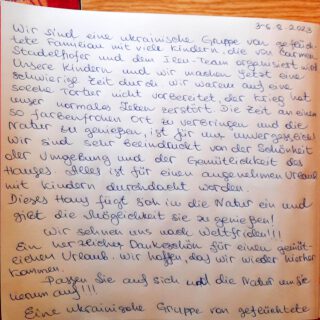 3-6.8.2023
Wir sind eine ukrainische Gruppe von geflüch-
tete Familian mit viele Kindern, die von Carmen
Stadelhofer und dem Ileu-Team organisiert wird
Unsere Kindern und wir machen jetzt eine
schwierige Zeit durch, wir waren auf eine
solche Tortur nicht vorbereitet, der Krieg hat
unser normales Leben zerstört. Die Zeit an einem
so farbenfrohen Ort zu verbringen und die
Natur zu genießen, ist für uns unvergesslich.
Wir sind sehr beeindruckt von der Schönheit
der Umgebung und der Gemütlichkeit des
Hauses. Alles ist für einen angenehmen Urlaub
mit Kindern durchdacht worden.
Dieses Haus fügt sich in die Natur ein und
gibt die Möglichkeit sie zu genießen!
Wir sehnen uns nach Weltfriden!!!
Ein herzlicher Dankeschön für einen gemüt-
lichen Urlaub. Wir hoffen, das wir wieder hierher
kommen.
Passen Sie auf sich und die Natur um Sie
herum auf!!!
Eine ukrainische Gruppe von geflüchtete